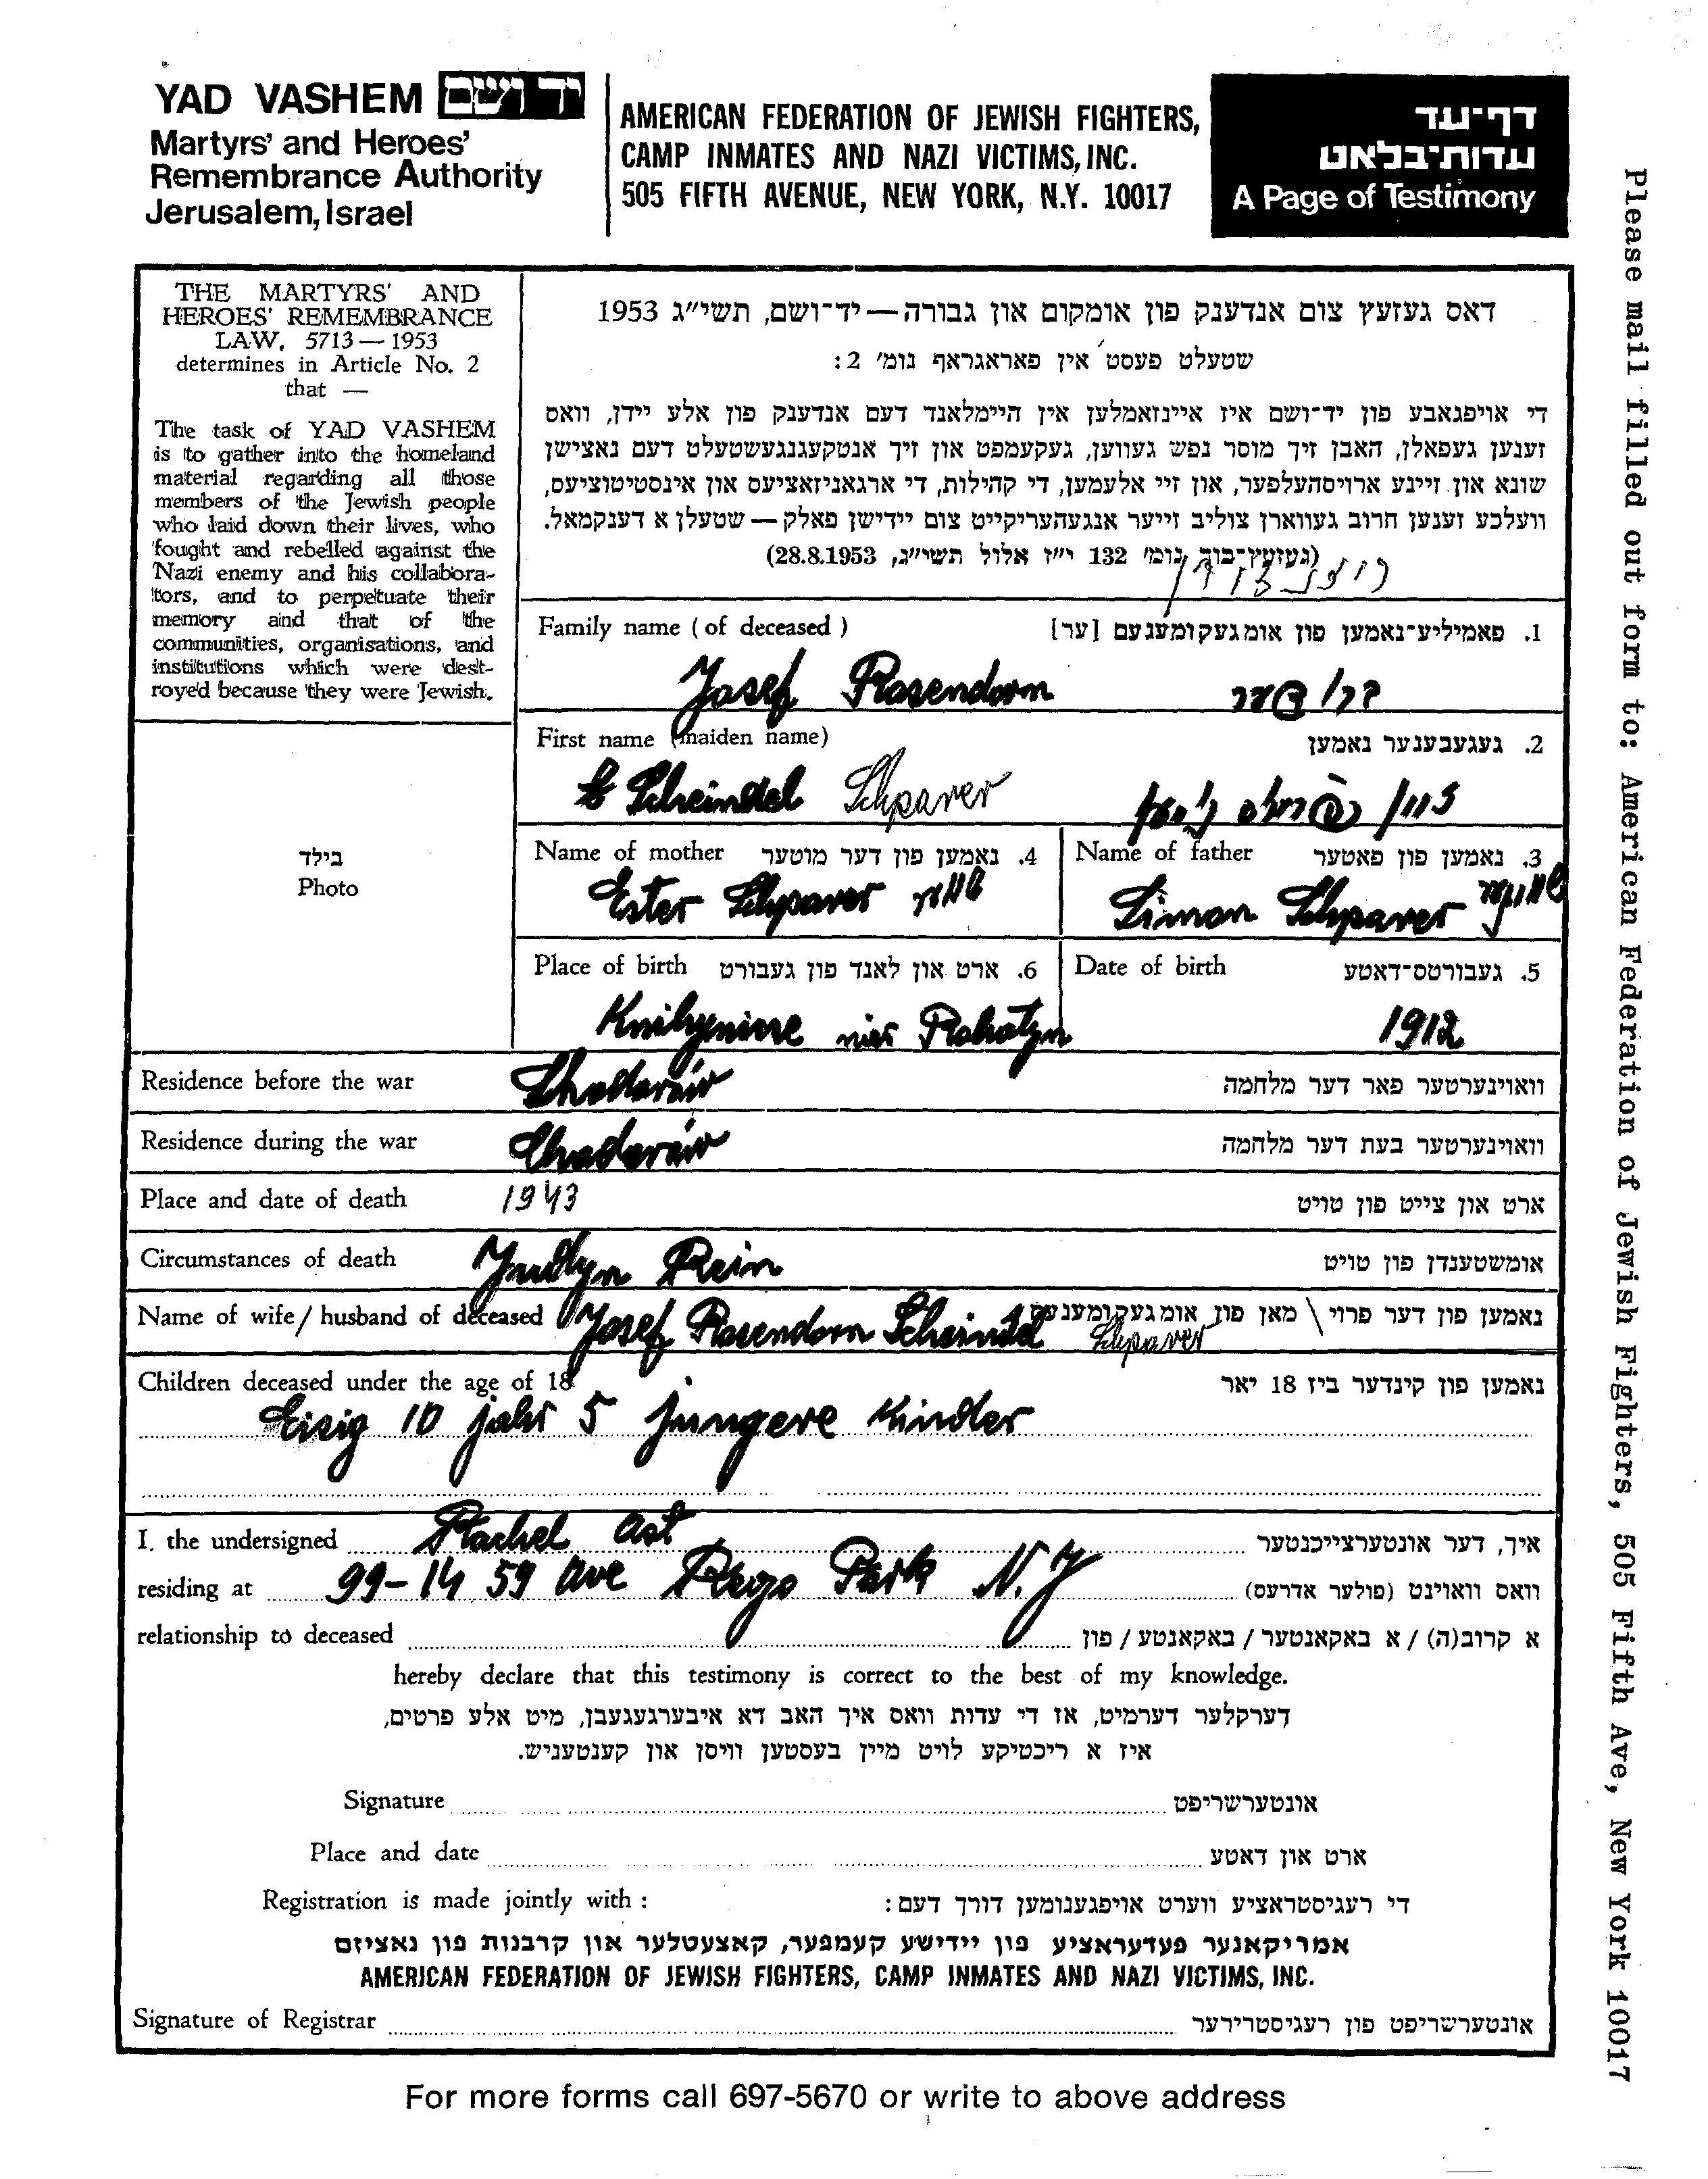 YAD VASHEM יד ושם
Martyrs' and Heroes'
Remembrance Authority
Jerusalem, Israel
AMERICAN FEDERATION OF JEWISH FIGHTERS,
CAMP INMATES AND NAZI VICTIMS, INC.
505 FIFTH AVENUE, NEW YORK, N.Y. 10017
דף-עד
עדות-בלאט
A Page of Testimony
THE MARTYRS' AND
HEROES' REMEMBRANCE
LAW, 5713 — 1953
determines in Article No. 2
that —
The task of YAD VASHEM
is to gather into the homeland
material regarding all those
members of the Jewish people
who laid down their lives, who
fought and rebelled against the
Nazi enemy and his collabora-
tors, and to perpetuate their
memory and that of the
communities, organisations, and
institutions which were dest-
royed because they were Jewish.
דאס געזעץ צום אנדענק פון אומקום און גבורה — יד-ושם, תשי"ג 1953
שטעלט פעסט אין פאראגראף נומ' 2:
די אויפגאבע פון יד-ושם איז איינזאמלען אין היימלאנד דעם אנדענק פון אלע יידן, וואס
זענען געפאלן, האבן זיך מוסר נפש געווען, געקעמפט און זיך אנטקעגנגעשטעלט דעם נאצישן
שונא און זיינע ארויסהעלפער, און זיי אלעמען, די קהילות, די ארגאניזאציעס און אינסטיטוציעס,
וועלכע זענען חרוב געווארן צוליב זייער אנגעהעריקייט צום יידישן פאלק — שטעלן א דענקמאל.
(געזעץ-בוך נומ' 132 י"ז אלול תשי"ג, 28.8.1953)
Family name ( of deceased )
1. פאמיליע-נאמען פון אומגעקומענעם [ער]
Josef Rosendorn
First name (maiden name)
2. געגעבענער נאמען
Scheindel Schpaner
Name of mother 4. נאמען פון דער מוטער
Name of father 3. נאמען פון פאטער
Ester Schpaner
Simon Schpaner
Place of birth 6. ארט און לאנד פון געבורט
Date of birth 5. געבורטס-דאטע
Knihynicze nier Rohatyn
1912
Residence before the war Chodorów וואוינערטער פאר דער מלחמה
Residence during the war Chodorów וואוינערטער בעת דער מלחמה
Place and date of death 1943 ארט און צייט פון טויט
Circumstances of death Judyn Rein אומשטענדן פון טויט
Name of wife / husband of deceased Josef Rosendorn Scheindel Schpaner נאמען פון דער פרוי \ מאן פון אומגעקומענעם
Children deceased under the age of 18 נאמען פון קינדער ביז 18 יאר
Eisig 10 jahr 5 jungere Kinder
I, the undersigned Rachel Ast איך, דער אונטערצייכנטער
residing at 99-14 59 Ave Rego Park N.Y וואס וואוינט (פולער אדרעס)
relationship to deceased א קרוב(ה) / א באקאנטער / באקאנטע / פון
hereby declare that this testimony is correct to the best of my knowledge.
דערקלער דערמיט, אז די עדות וואס איך האב דא איבערגעגעבן, מיט אלע פרטים,
איז א ריכטיקע לויט מיין בעסטען וויסן און קענטעניש.
Signature אונטערשריפט
Place and date ארט און דאטע
Registration is made jointly with : די רעגיסטראציע ווערט אויפגענומען דורך דעם:
אמריקאנער פעדעראציע פון יידישע קעמפער, קאצעטלער און קרבנות פון נאציזם
AMERICAN FEDERATION OF JEWISH FIGHTERS, CAMP INMATES AND NAZI VICTIMS, INC.
Signature of Registrar אונטערשריפט פון רעגיסטרירער
בילד
Photo
For more forms call 697-5670 or write to above address
Please mail filled out form to: American Federation of Jewish Fighters, 505 Fifth Ave, New York 10017